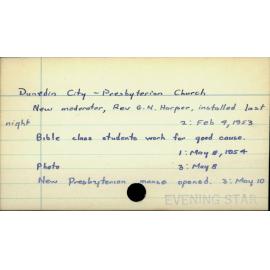 Dunedin City - Presbyterian Church
New moderator, Rev G.N. Harper, installed last
night 2: Feb 9, 1953
Bible class students work for good cause.
1: May 8, 1954
Photo 3: May 8
New Presbyterian manse opened. 3: May 10
EVENING STAR